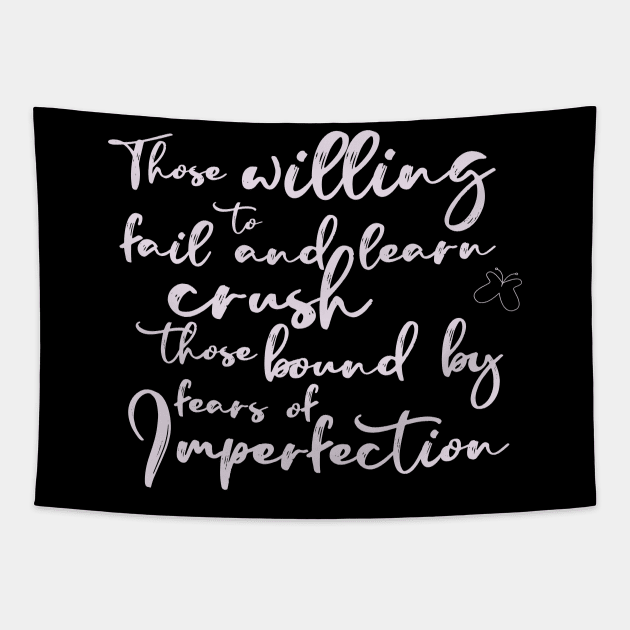 Those willing
to
fail and learn
crush
those bound by
fears of
Imperfection